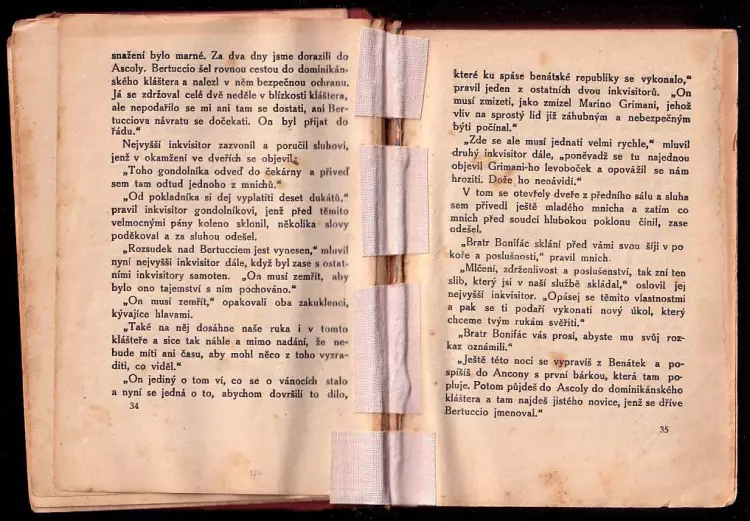 snažení bylo marné. Za dva dny jsme dorazili do
Ascoly. Bertuccio šel rovnou cestou do dominikán-
ského kláštera a nalezl v něm bezpečnou ochranu.
Já se zdržoval celé dvě neděle v blízkosti kláštera,
ale nepodařilo se mi ani tam se dostati, ani Ber-
tucciova návratu se dočekati. On byl přijat do
řádu.“
Nejvyšší inkvisitor zazvonil a poručil sluhovi,
jenž v okamžení ve dveřích se objevil:
„Toho gondolníka odveď do čekárny a přiveď
sem tam odtud jednoho z mnichů.“
„Od pokladníka si dej vyplatiti deset dukátů,“
pravil inkvisitor gondolníkovi, jenž před těmito
velmocnými pány koleno sklonil, několika slovy
poděkoval a za sluhou odešel.
„Rozsudek nad Bertucciem jest vynesen,“ mluvil
nyní nejvyšší inkvisitor dále, když byl zase s ostat-
ními inkvisitory samoten. „On musí zemřít, aby
bylo ono tajemství s ním pochováno.“
„On musí zemřít,“ opakovali oba zakuklenci,
kývajíce hlavami.
„Také na něj dosáhne naše ruka i v tomto
klášteře a sice tak náhle a mimo nadání, že ne-
bude míti ani času, aby mohl něco z toho vyzra-
diti, co viděl.“
„On jediný o tom ví, co se o vánocích stalo
a nyní se jedná o to, abychom dovršili to dílo,
34
které ku spáse benátské republiky se vykonalo,“
pravil jeden z ostatních dvou inkvisitorů. „On
musí zmizeti, jako zmizel Marino Grimani, jehož
vliv na sprostý lid již záhubným a nebezpečným
býti počínal.“
„Zde se ale musí jednati velmi rychle,“ mluvil
druhý inkvisitor dále, „poněvadž se tu najednou
objevil Grimani-ho levoboček a opovážil se nám
hroziti. Dože ho nenávidí.“
V tom se otevřely dveře z předního sálu a sluha
sem přivedl ještě mladého mnicha a zatím co
mnich před soudci hlubokou poklonu činil, zase
odešel.
„Bratr Bonifác sklání před vámi svou šíji v po
koře a poslušnosti,“ pravil mnich.
„Mlčení, zdrženlivost a poslušenství, tak zní ten
slib, který jsi v naší službě skládal,“ oslovil jej
nejvyšší inkvisitor. „Opásej se těmito vlastnostmi
a pak se ti podaří vykonati nový úkol, který
chceme tvým rukám svěřiti.“
„Bratr Bonifác vás prosí, abyste mu svůj roz-
kaz oznámili.“
„Ještě této noci se vypravíš z Benátek a po-
spíšíš do Ancony s první bárkou, která tam po-
pluje. Potom půjdeš do Ascoly do dominikánského
kláštera a tam najdeš jistého novice, jenž se dříve
Bertuccio jmenoval.“
35